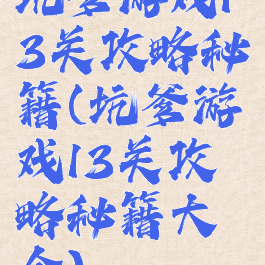 坑爹游戏1
3关攻略秘
籍(坑爹游
戏13关攻
略秘籍大
全)